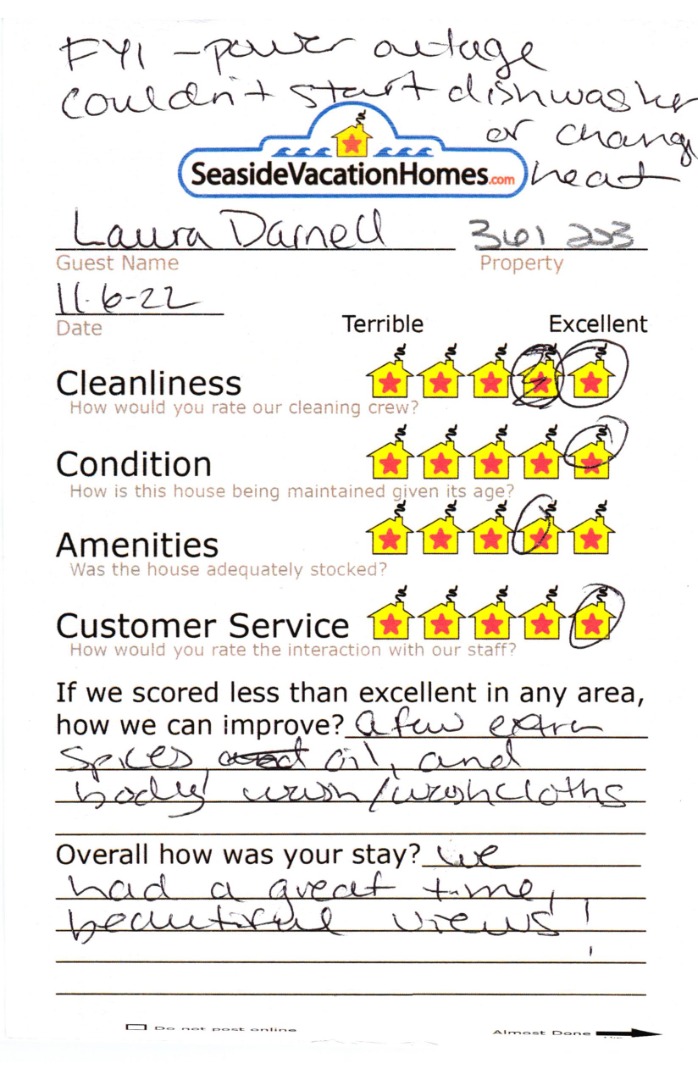 FYI - power outage
couldn't start dishwasher
or change
heat
SeasideVacationHomes.com
Laura Darnell 361 203
Guest Name Property
11-6-22
Date
Terrible Excellent
Cleanliness
How would you rate our cleaning crew?
Condition
How is this house being maintained given its age?
Amenities
Was the house adequately stocked?
Customer Service
How would you rate the interaction with our staff?
If we scored less than excellent in any area,
how we can improve? a few extra
spices, oil, and
body wash/washcloths
Overall how was your stay? we
had a great time,
beautiful views!
Do not post online Almost Done